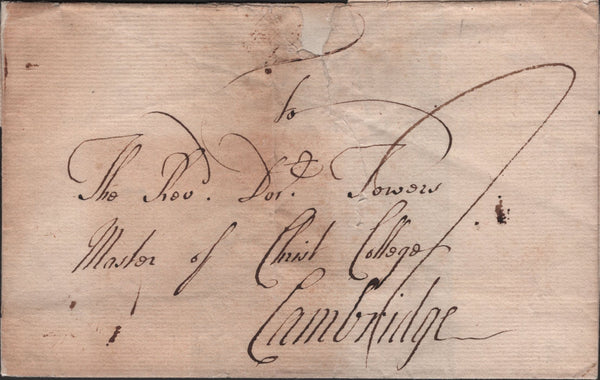 to
The Revd. Dor. Towers
Master of Christ College
Cambridge